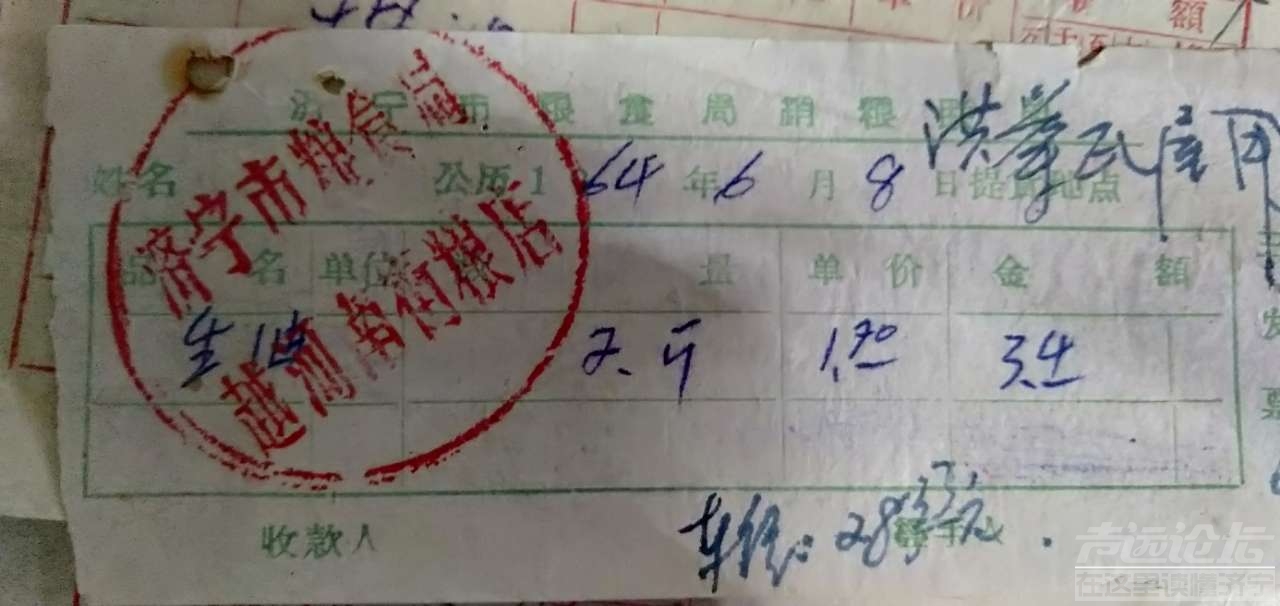 额
济宁市粮食局销粮
洪学民 用
姓名 公历1964年6月8日提货地点
济宁市粮食局
越河南街粮店
品名 单位 数量 单价 金额
生油 2.斤 1.70 3.4
发
票
收款人 经手人
车钱：28.33元.
老运论坛
在这里读懂济宁